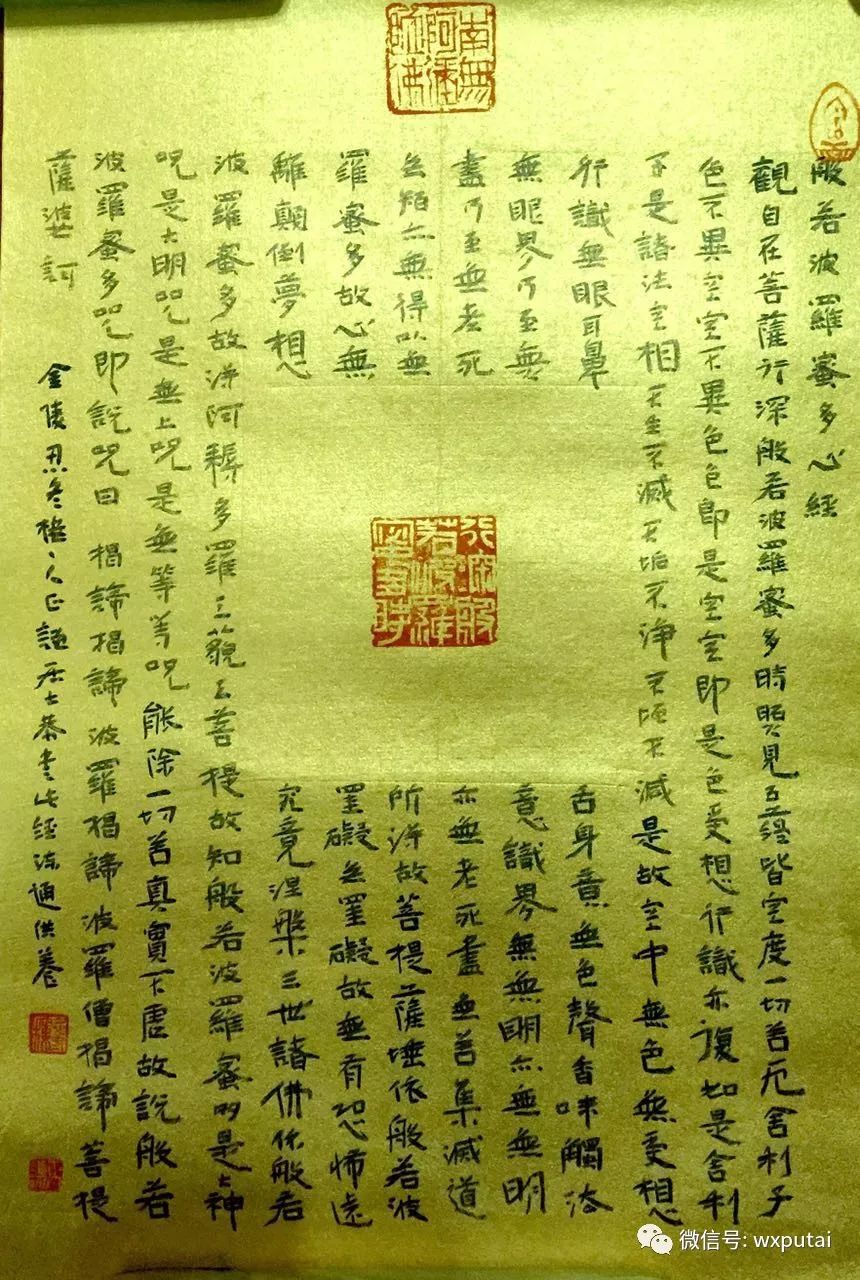 南無阿彌陀佛
般若波羅蜜多心經
觀自在菩薩行深般若波羅蜜多時照見五蘊皆空度一切苦厄舍利子
色不異空空不異色色即是空空即是色受想行識亦復如是舍利
子是諸法空相不生不滅不垢不淨不增不減是故空中無色無受想
行識無眼耳鼻舌身意無色聲香味觸法
無眼界乃至無意識界無無明亦無無明
盡乃至無老死亦無老死盡無苦集滅道
無智亦無得以無所得故菩提薩埵依般若波
羅蜜多故心無罣礙無罣礙故無有恐怖遠
離顛倒夢想究竟涅槃三世諸佛依般若
波羅蜜多故得阿耨多羅三藐三菩提故知般若波羅蜜多是大神
咒是大明咒是無上咒是無等等咒能除一切苦真實不虛故說般若
波羅蜜多咒即說咒曰揭諦揭諦波羅揭諦波羅僧揭諦菩提
薩婆訶
金陵丑冬 人正謙居士恭書此經流通供養
行深般若波羅蜜多時
微信号: wxputai